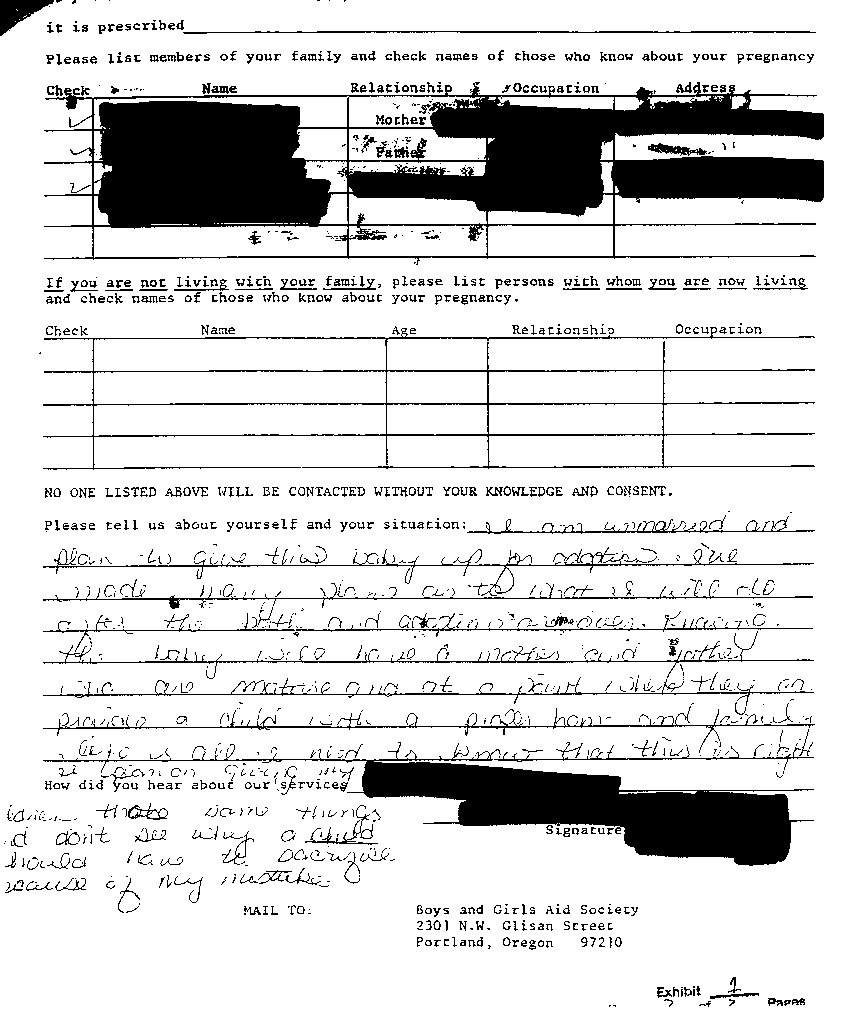 it is prescribed
Please list members of your family and check names of those who know about your pregnancy
Check Name Relationship Occupation Address
Mother
Father
If you are not living with your family, please list persons with whom you are now living
and check names of those who know about your pregnancy.
Check Name Age Relationship Occupation
NO ONE LISTED ABOVE WILL BE CONTACTED WITHOUT YOUR KNOWLEDGE AND CONSENT.
Please tell us about yourself and your situation: I am unmarried and
plan to give this baby up for adoption. I've
made many plans as to what I will do
after the birth and adoption are over. Knowing
the baby will have a mother and father
who are mature and at a point where they can
provide a child with a proper home and family
life is all I need to know that this is right
I plan on giving my
How did you hear about our services
these same things
I don't see why a child
should have to sacrifice
because of my mistake.
Signature
MAIL TO: Boys and Girls Aid Society
2301 N.W. Glisan Street
Portland, Oregon 97210
Exhibit 1
2 of 2 Pages